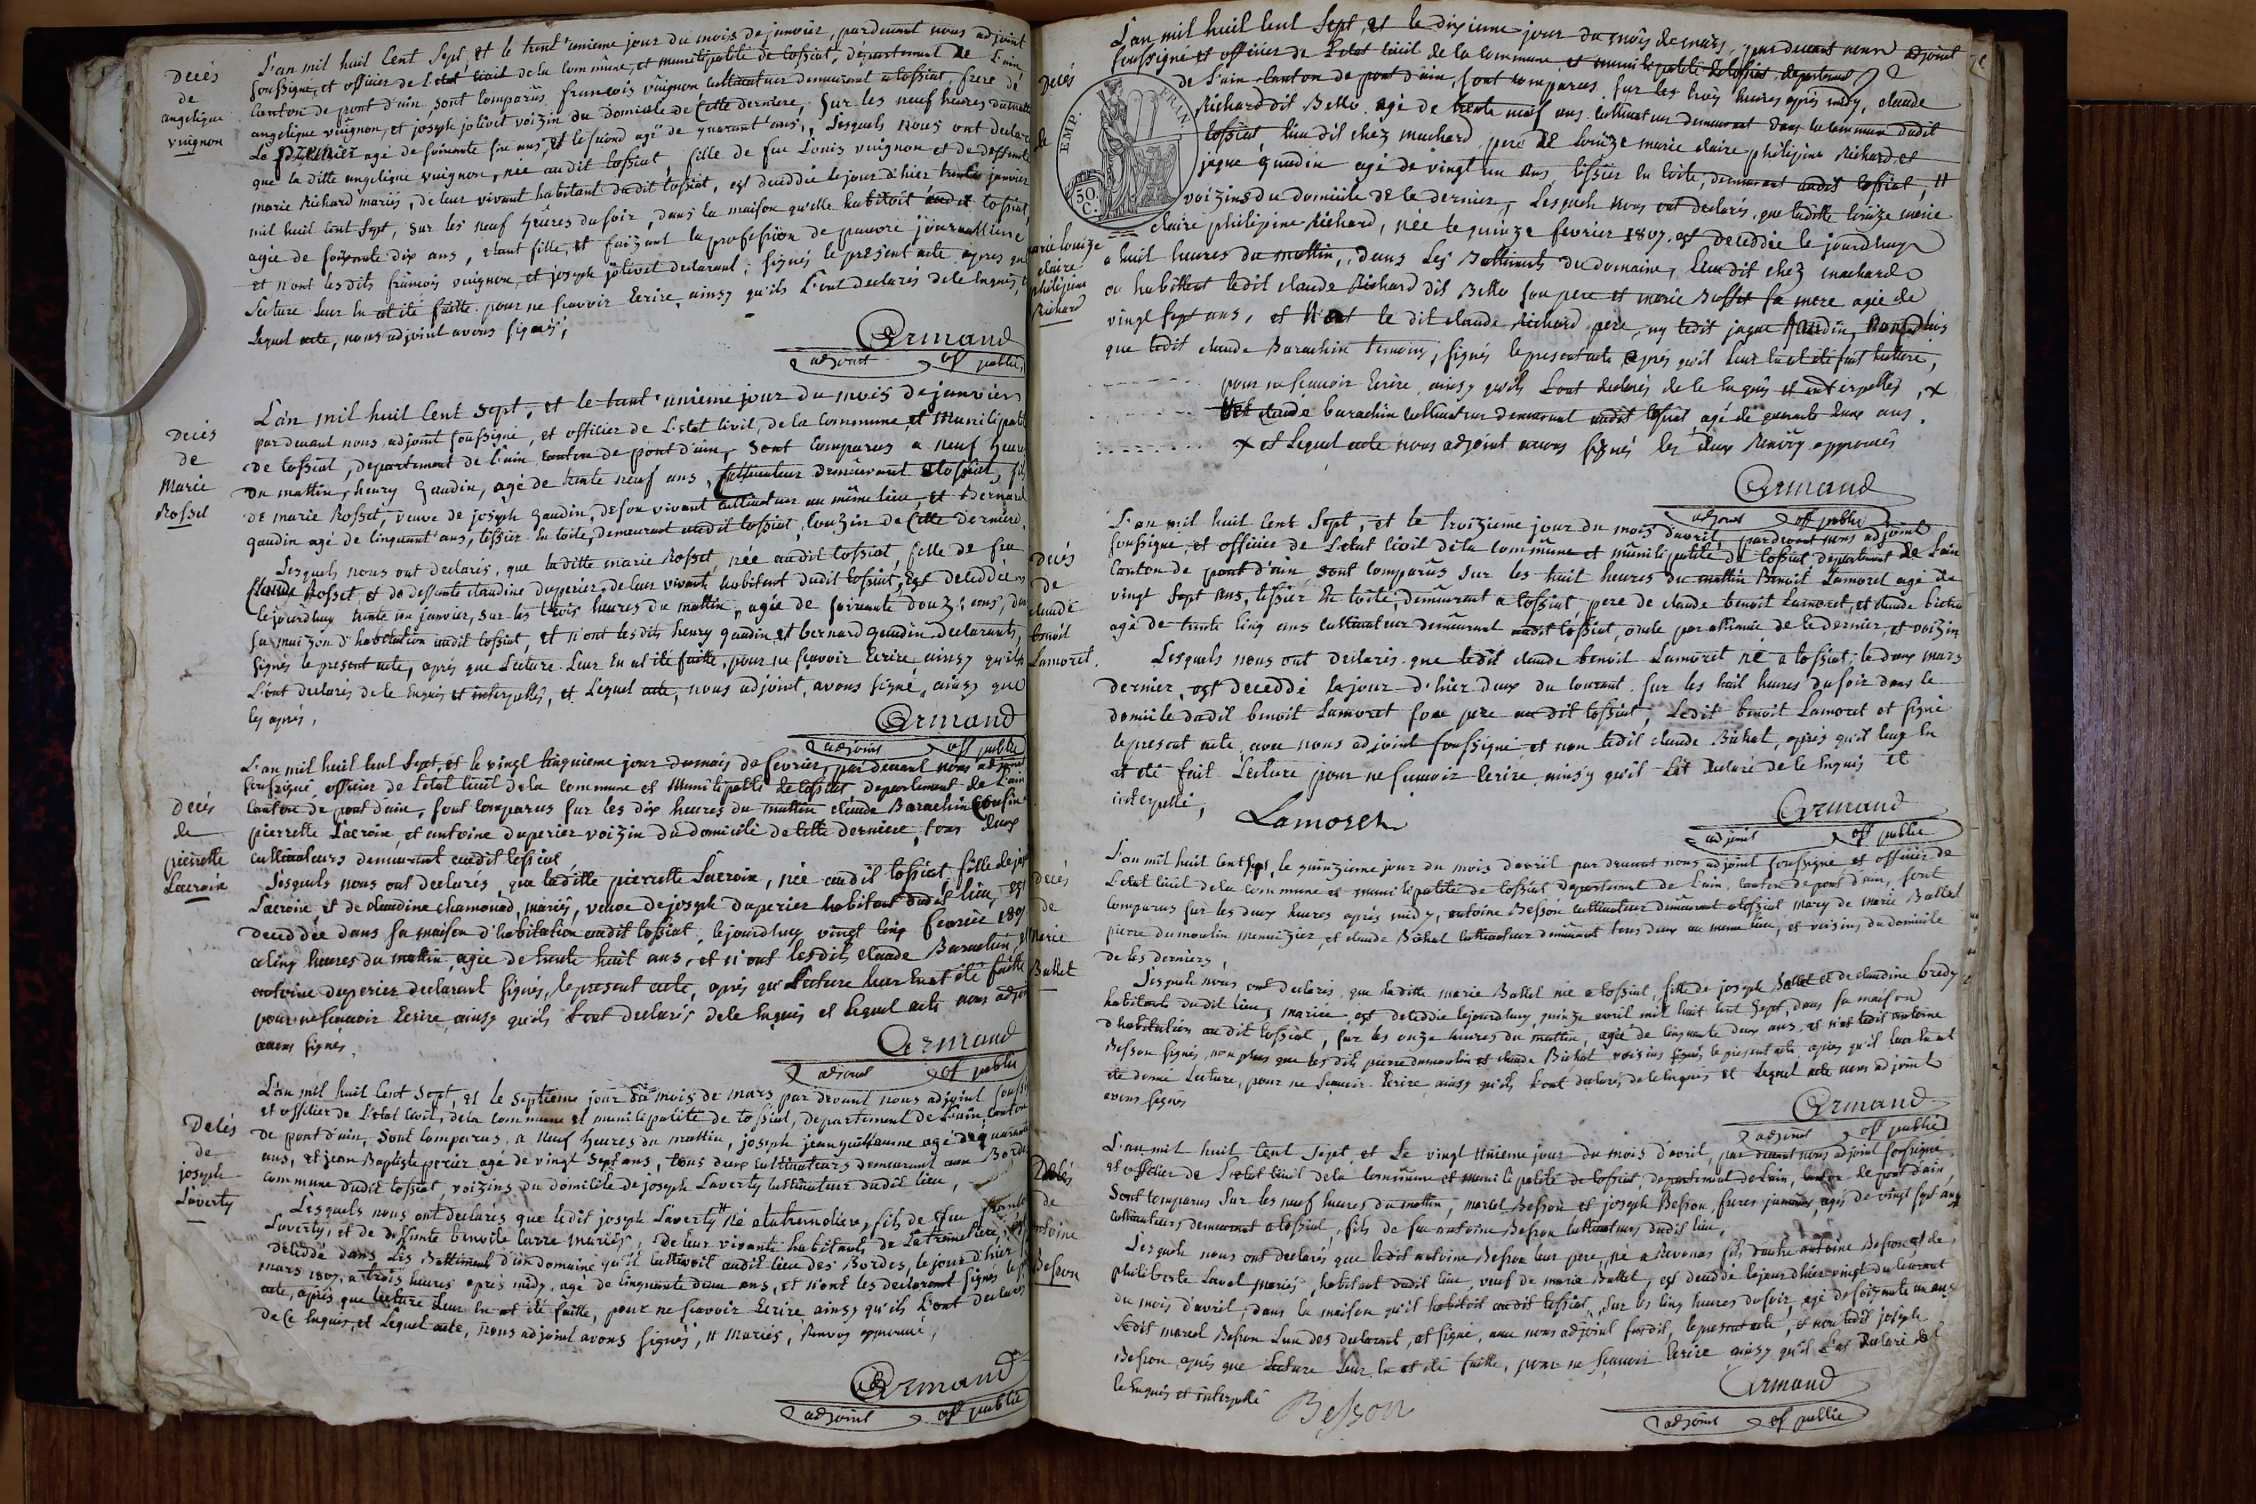 Decés
de
angelique
vuignon
L'an mil huil Cent Sept, et le trent'unieme jour du mois de janvier, pardevant nous adjoint
soussigné, et officier de L'etat Civil de la Commune, et municipalité de tossiat, département de L'ain
Canton de pont d'ain, sont Comparus françois vuignon Cultivateur demeurant a tossiat, frere de
angelique vuignon, et joseph jolivet voizin du Domicile de Cette derniere, Sur les neuf heures du mattin
Le premier agé de soixante six ans, et le second agé de quarant'ans, Lesquels nous ont declaré
que la ditte angelique vuignon, née au dit tossiat, fille de feu Louis vuignon et de deffunte
marie Richard mariés, de leur vivant habitant dudit tossiat, est deceddée le jour d'hier trente janvier
mil huil Cent Sept, sur les neuf heures du soir, dans la maison qu'elle habitoit audit tossiat,
agée de soixante dix ans, etant fille, et faizant la profession de pauvre journalliere,
et n'ont lesdits françois vuignon, et joseph jolivet declarant, signés le présent acte, apres que
Lecture Leur En at été faitte, pour ne sçavoir Ecrire, ainsy qu'ils L'ont declarés de le Enquis,
Lequel acte, nous adjoint avons signés,
Armand
adjoint off public
Decés
de
Marie
Rosset
L'an mil huil Cent Sept, et le trent'unieme jour du mois de janvier
par devant nous adjoint soussigné, et officier de L'etat Civil, de la Commune, et Municipalité
de tossiat, departement de L'ain Canton de pont d'ain, sont Comparus a neuf heures
du mattin, henry gaudin, agé de trente neuf ans, Cultivateur demeurant a tossiat, fils
de marie Rosset, veuve de joseph gaudin, de son vivant Cultivateur au même lieu, et Bernard
gaudin agé de Cinquant'ans, tissier En toile, demeurant audit tossiat, Couzin de Cette derniere,
Lesquels nous ont declarés, que la ditte marie Rosset, née audit tossiat, fille de feu
Claude Rosset et de deffunte Claudine duperier, de leur vivant, habitant dudit tossiat, Est deceddée
Le jourd'huy trente un janvier, sur les trois heures du mattin, agée de soixante douze ans, dans
sa maizon d'habitation audit tossiat, et n'ont lesdits henry gaudin, et bernard gaudin declarants,
signés le present acte, après que Lecture Leur En at été faitte, pour ne sçavoir Ecrire ainsy qu'ils
L'ont declarés de le Enquis et interpellés, et Lequel acte, nous adjoint, avons signé, ainsy que
les après,
Armand
adjoint off public
Decés
de
pierrette
Lacroix
L'an mil huil Cent Sept, et le vingt Cinquieme jour du mois de fevrier, par devant nous adjoint
soussigné officier de L'etat Civil de la Commune et Municipalité de tossiat departement de L'ain
Canton de pont d'ain, sont Comparus sur les dix heures du mattin claude Barachin Cousin
pierrette Lacroix, et antoine duperier voizin du domicile de Cette derniere, tous deux
Cultivateurs demeurant audit tossiat
Lesquels nous ont declarés, que la ditte pierrette Lacroix, née audit tossiat, fille de
Lacroix, et de Claudine Chamonad, mariés, veuve de joseph duperier habitant dudit lieu, est
deceddée dans sa maison d'habitation audit tossiat, le jourd'huy vingt Cinq fevrier 1807
a Cinq heures du mattin, agée de trente huit ans, et n'ont lesdits claude Barachin, et
antoine duperier declarant signés, le present acte, après qu'Lecture Leur En at été faitte
pour ne sçavoir Ecrire, ainsy qu'ils L'ont declarés de le Enquis et Lequel acte nous adjoint
avons signés,
Armand
adjoint off public
Decés
de
joseph
Laverty
L'an mil huil Cent Sept, et le Septieme jour du mois de mars par devant nous adjoint
et officier de L'etat Civil, de la Commune et municipalité de tossiat, departement de L'ain, Canton
de pont d'ain, sont Comparus, a neuf heures du mattin, joseph jeanguillaume agé de quarante
ans, et jean Baptiste perier agé de vingt Sept ans, tous deux Cultivateurs demeurant aux Bordes
Commune dudit tossiat, voizins du domicile de joseph Laverty Cultivateur dudit lieu,
Lesquels nous ont declarés que ledit joseph Laverty # né a latranoliere, fils de feu
Laverty, et de deffunte benoite Carre mariés, de leur vivants habitants de
deceddé dans Les Battiment d'un domaine qu'il Cultivoit audit lieu des Bordes, le jour d'hier
mars 1807, a trois heures après midy, agé de Cinquante deux ans, et n'ont les declarant signés le
acte, après que Lecture Leur En at été faitte, pour ne sçavoir Ecrire ainsy qu'ils L'ont declarés
de Ce Enquis, et Lequel acte, nous adjoint avons signés, # Mariés, Renvoy approuvé,
Armand
adjoint off public
Decés
de
marie Louize
claire
philipine
Richard
L'an mil huil Cent Sept, et le dixieme jour du mois de mars, par devant nous adjoint
soussigné et officier de L'etat Civil de la Commune et municipalité de tossiat, departement
de L'ain Canton de pont d'ain, sont Comparus sur les trois heures après midy, claude
Richard dit Bello agé de trente neuf ans Cultivateur demeurant dans la Commune dudit
tossiat, lieu dit chez machard pere de Louize marie claire philipine Richard et
jaque gaudin agé de vingt un ans, tissier En toile, demeurant audit tossiat, #
voizins du domicile de la derniere, Lesquels nous ont declarés, que laditte Louize marie
claire philipine Richard, née le quinze fevrier 1807, est deceddée le jourd'huy
a huil heures du mattin, dans Les Battiments du domaine, lieu dit chez machard
ou habittent ledit claude Richard dit Bello son pere et marie Buffet sa mere agée de
vingt sept ans, et N'ont le dit claude Richard pere, ny ledit jaque gaudin, non plus
que ledit claude Barachin temoins, signés le present acte après qu'il Leur En at été fait Lecture,
pour ne sçavoir Ecrire, ainsy qu'ils L'ont declarés de le Enquis et interpellés, x
# Et claude barachin Cultivateur demeurant audit tossiat, agé de quarante deux ans.
x et Lequel acte nous adjoint avons signés les deux Renvoy approuvés
Armand
adjoint off public
EMP. FRAN.
50
C.
Decés
de
claude
benoit
Lamoret
L'an mil huil Cent Sept, et le troizieme jour du mois d'avril, par devant nous adjoint
soussigné, et officier de L'etat Civil de la Commune et municipalité de tossiat departement de L'ain
Canton de pont d'ain sont Comparus sur les huit heures du mattin Benoit Lamoret agé de
vingt Sept ans, tissier En toile, demeurant a tossiat, pere de claude benoit Lamoret, et claude bichat
agé de trente Cinq ans Cultivateur demeurant audit tossiat, oncle par alliance de Ce dernier, et voizin
Lesquels nous ont declarés que ledit claude benoit Lamoret né a tossiat, le deux mars
dernier, est deceddé le jour d'hier deux du Courant sur les huit heures du soir dans le
domicile dudit benoit Lamoret son pere audit tossiat, Ledit benoit Lamoret at signé
le present acte avec nous adjoint soussigné et non ledit claude Bichat, après qu'il Leur En
at été fait Lecture pour ne sçavoir Ecrire, ainsy qu'il L'at declaré de le Enquis et
interpellé,
Lamoret
Armand
adjoint off public
Decés
de
Marie
Ballet
L'an mil huil Cent Sept, le quinzieme jour du mois d'avril par devant nous adjoint soussigné et officier de
L'etat Civil de la Commune et municipalité de tossiat departement de L'ain, Canton de pont d'ain, sont
Comparus sur les deux heures après midy, antoine Besson Cultivateur demeurant a tossiat mary de marie Ballet
pierre dumoulin menuizier, et claude Bichat Cultivateur demeurant tous deux au meme lieu, et voizins du domicile
de Ces derniers,
Lesquels nous ont declarés, que laditte marie Ballet née a tossiat, fille de joseph Ballet et de claudine bredy
habitants dudit lieu, mariée, est deceddée le jourd'huy, quinze avril mil huit Cent Sept, dans sa maison
d'habitation audit tossiat, sur les onze heures du mattin, agée de Cinquante deux ans, et n'at ledit antoine
Besson signés, non plus que les dits pierre dumoulin et claude Bichat voizins signés le present acte, apres qu'il Leur En at
été donné Lecture, pour ne sçavoir Ecrire ainsy qu'ils L'ont declarés, de le Enquis et Lequel acte nous adjoint
avons signés
Armand
adjoint off public
Decés
de
antoine
Besson
L'an mil huil Cent Sept, et Le vingt unieme jour du mois d'avril, par devant nous adjoint soussigné
et officier de L'etat Civil de la Commune et municipalité de tossiat, departement de L'ain, Canton de pont d'ain,
sont Comparus sur les neuf heures du mattin, marcel Besson et joseph Besson, freres jumeaux, agés de vingt sept ans
Cultivateurs demeurant a tossiat, fils de feu antoine Besson Cultivateur dudit lieu,
Lesquels nous ont declarés que ledit antoine Besson leur pere, né a Revonas fils d'autre antoine Besson et de
philiberte Laval mariés, habitant dudit lieu, veuf de marie Ballet, est deceddé le jour d'hier vingt du Courant
du mois d'avril, dans la maison qu'il habitoit audit tossiat, sur les Cinq heures du soir, agé de soixante un ans
Ledit marcel Besson L'un des declarant, at signé, avec nous adjoint susdit, le present acte, et non ledit joseph
Besson, après que Lecture Leur En at été faitte, pour ne sçavoir Ecrire ainsy qu'il L'at declaré de
le Enquis et interpellé
Besson
Armand
adjoint off public